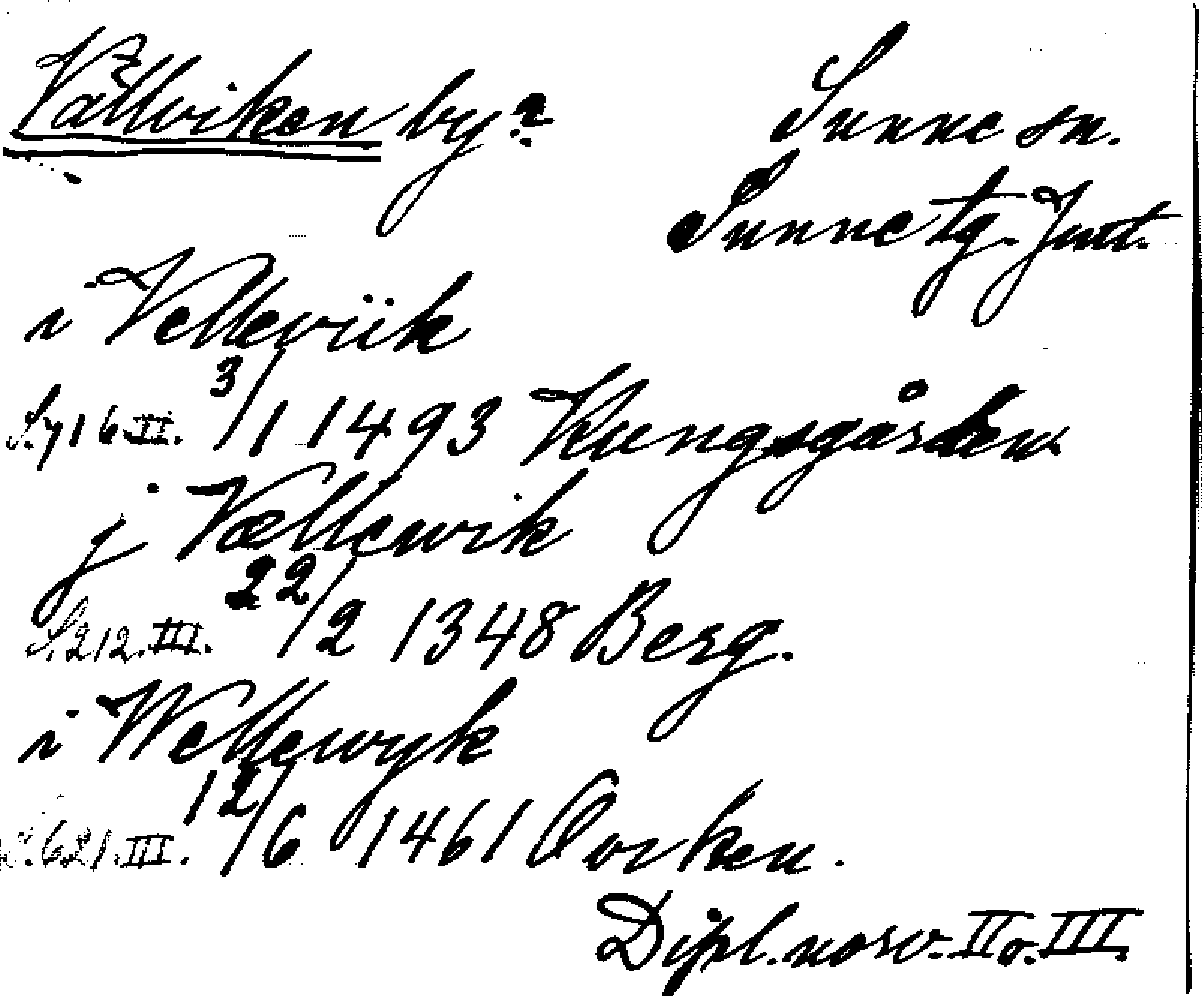 Vällviken by?
Sunne sn.
Sunne tg. Jmt.
i Velleviik
S. 716 II. 3/1 1493 Kungsgården
j Vællewik
S. 212. III. 22/2 1348 Berg.
i Wellewyk
S. 621. III. 12/6 1461 Oviken.
Dipl. norv. II o. III.